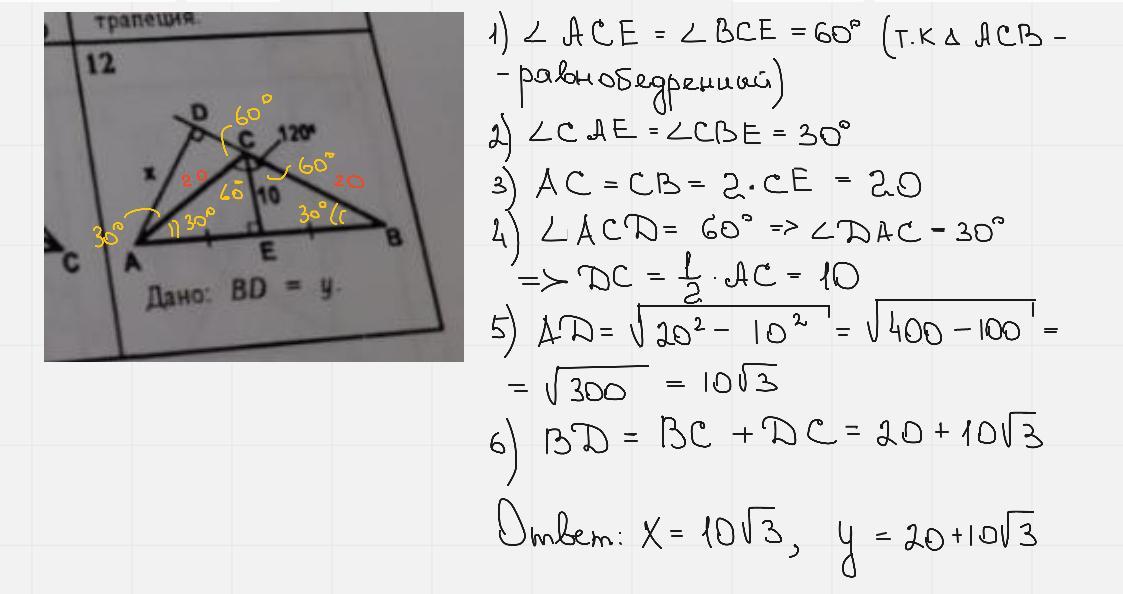 трапеция.
12
D
60°
C
120°
x
20
60°
60°
10
20
30°
30°
30°
C
A
E
B
Дано: BD = y.
1) ∠ ACE = ∠ BCE = 60° (т.к Δ ACB -
- равнобедренний)
2) ∠CAE = ∠CBE = 30°
3) AC = CB = 2·CE = 20
4) ∠ACD = 60° => ∠DAC - 30°
=> DC = 1/2 · AC = 10
5) AD = √20² - 10² = √400 - 100 =
= √300 = 10√3
6) BD = BC + DC = 20 + 10√3
Ответ: X = 10√3, y = 20+10√3